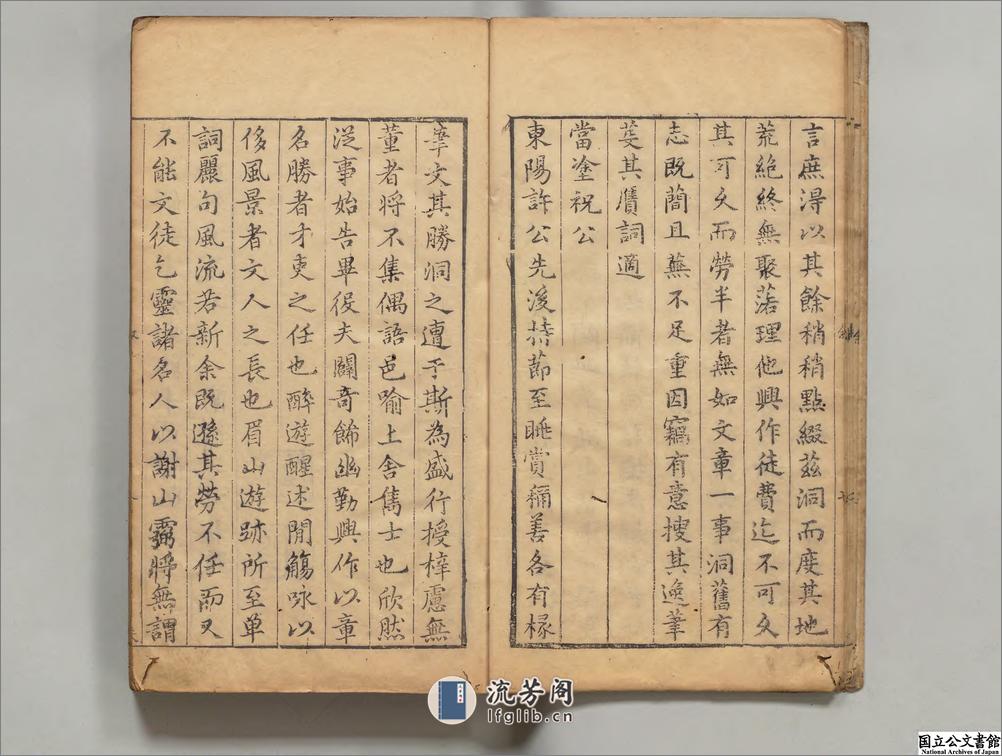 言庶淂以其餘稍稍點綴茲洞而度其地
荒絶終無聚落理他興作徒費迄不可久
其可久而勞半者無如文章一事洞舊有
志既蕳且蕪不足重因竊有意搜其逸筆
芟其贋詞適
當塗祝公
東陽許公先後持節至眺賞稱善各有椽
筆文其勝洞之遭于斯為盛行授梓慮無
董者將不集偶語邑喻上舍雋士也欣然
従事始告畢役夫闢奇飾幽勤興作以章
名勝者才吏之任也醉遊醒述閒觴咏以
侈風景者文人之長也眉山遊跡所至單
詞麗句風流若新余既遜其勞不任而又
不能文徒乞靈諸名人以謝山靈將無謂
流芳阁
lfglib.cn
国立公文書館
National Archives of Japan